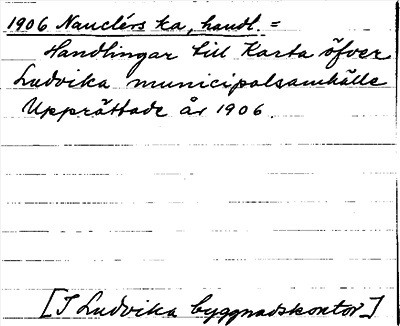 1906 Nauclérs ka, handl. =
Handlingar till Karta öfver
Ludvika municipalsamhälle
Upprättade år 1906.
[I Ludvika byggnadskontor]